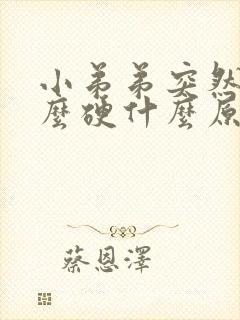 小弟弟突然
麼硬什麼原
蔡恩澤